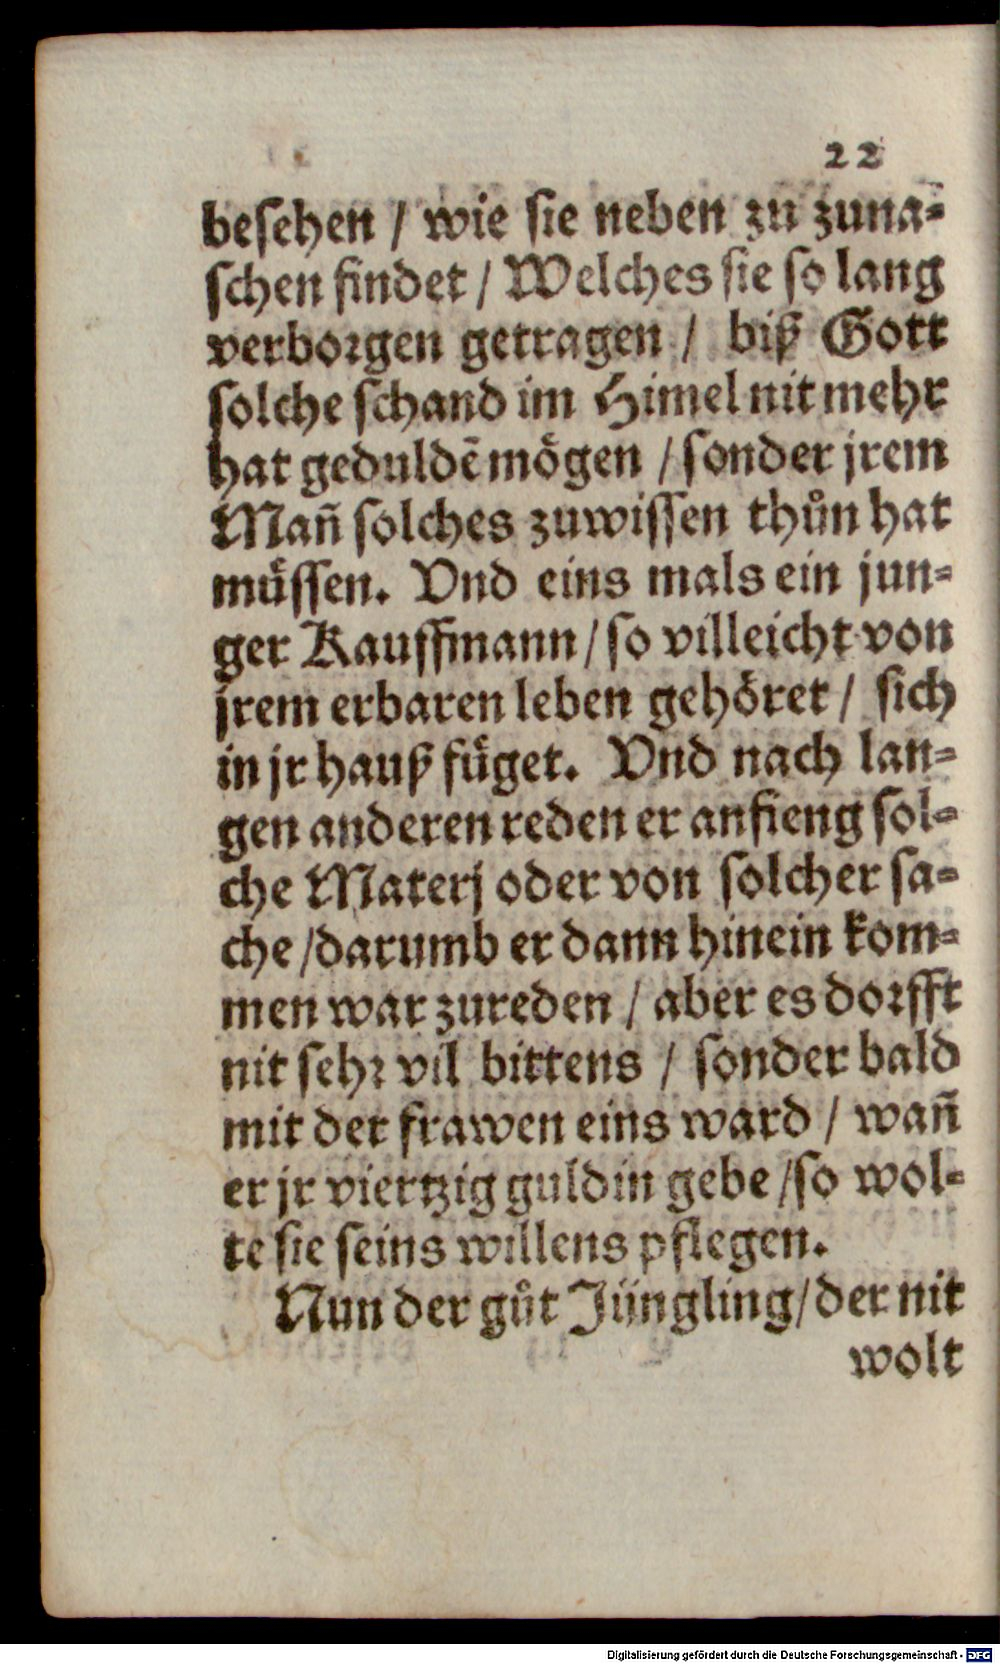 22
beſehen / wie ſie neben zu zuna⸗
ſchen findet / Welches ſie ſo lang
verborgen getragen / biß Gott
ſolche ſchand im Himel nit mehr
hat geduldẽ mögen / ſonder jrem
Mañ ſolches zuwiſſen thůn hat
müſſen. Vnd eins mals ein jun⸗
ger Kauffmann / ſo villeicht von
jrem erbaren leben gehöret / ſich
in jr hauß füget. Vnd nach lan⸗
gen anderen reden er anfieng ſol⸗
che Materj oder von ſolcher ſa⸗
che / darumb er dann hinein kom⸗
men war zureden / aber es dorfft
nit ſehr vil bittens / ſonder bald
mit der frawen eins ward / wañ
er jr viertzig guldin gebe / ſo wol⸗
te ſie ſeins willens pflegen.
Nun der gůt Jüngling / der nit
wolt
Digitalisierung gefördert durch die Deutsche Forschungsgemeinschaft - DFG